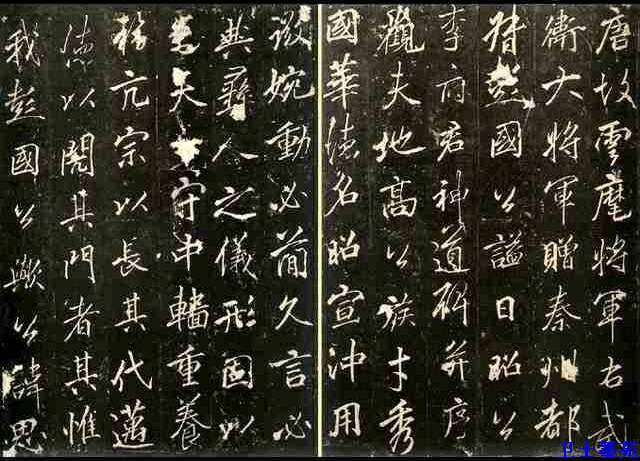 唐故雲麾將軍右武
衛大將軍贈秦州都
督彭國公諡曰昭公
李府君神道碑并序
觀夫地高公族才秀
國華德名昭宣沖用
微婉動必簡久言必
典彝人之儀形國以
夫守中轖重養
亢宗以長其代邁
德以其門者其惟
我彭國公歟公諱思